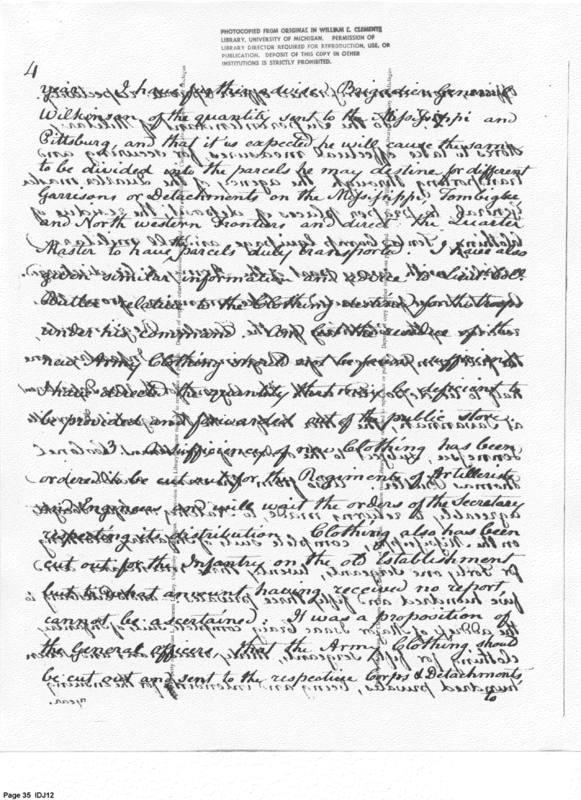 PHOTOCOPIED FROM ORIGINAL IN WILLIAM C. CLEMENTS
LIBRARY, UNIVERSITY OF MICHIGAN. PERMISSION OF
LIBRARY DIRECTOR REQUIRED FOR REPRODUCTION, USE, OR
PUBLICATION. DEPOSIT OF THIS COPY IN OTHER
INSTITUTIONS IS STRICTLY PROHIBITED.
4
I have further advised Brigadier General
Wilkinson of the quantity sent to the Mississippi and
Pittsburg, and that it is expected he will cause the same
to be divided into the parcels he may destine for different
Garrisons or Detachments on the Mississippi Tombigbe
and North western Frontiers and direct the Quarter
Master to have parcels duly transported. I have also
given similar information and advice to Lieut. Col.
Butler relative to the Clothing destined for the troops
under his command. And lest the residue of the
new Army Clothing should not be found sufficient
I have directed the quantity that may be deficient to
be provided and forwarded out of the public store
3. A sufficiency of new Clothing has been
ordered to be cut out for the Regiments of Artillerists
and Engineers, and will wait the orders of the Secretary
respecting its distribution. Clothing also has been
cut out for the Infantry on the old Establishment
but to what amount having received no report,
cannot be ascertained. It was a proposition of
the General officers, that the Army Clothing should
be cut out and sent to the respective Corps & Detachments,
to
Page 35 IDJ12